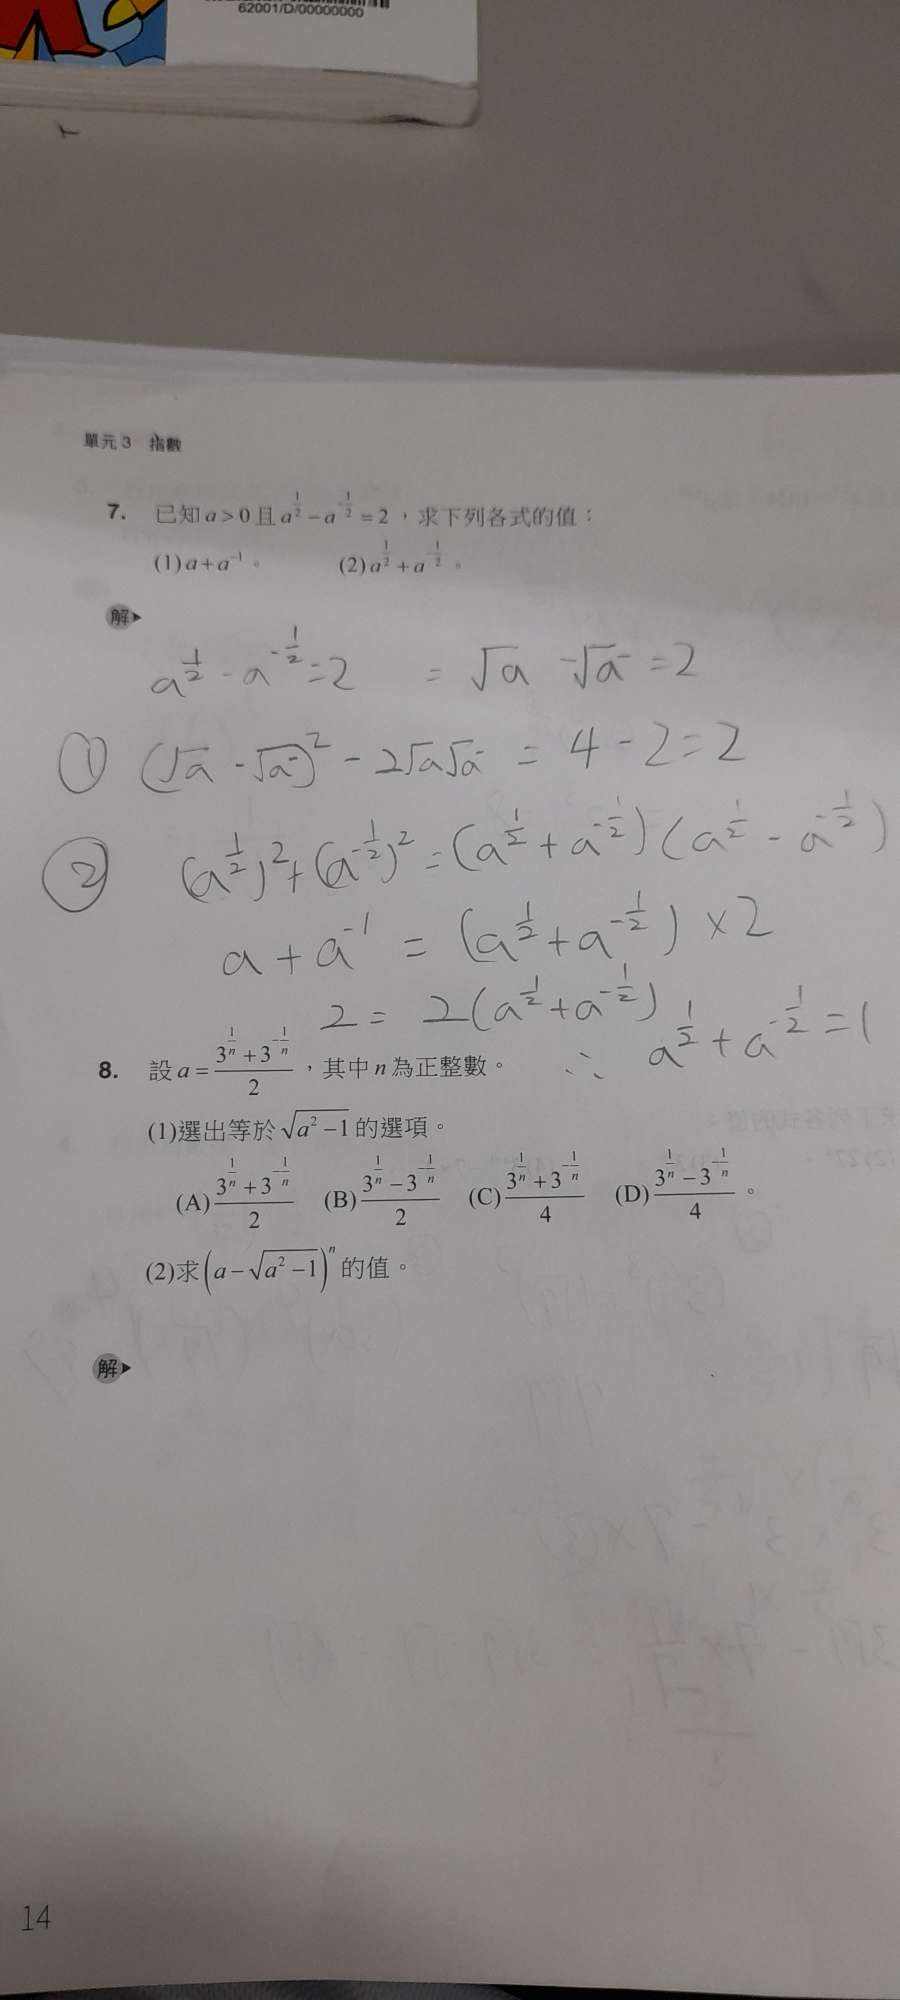 62001/D/00000000
單元 3 指數
7. 已知 a > 0 且 a^{\frac{1}{2}} - a^{-\frac{1}{2}} = 2，求下列各式的值：
(1) a + a^{-1}。 (2) a^{\frac{1}{2}} + a^{-\frac{1}{2}}。
解
a^{\frac{1}{2}} - a^{-\frac{1}{2}} = 2 = √a - √a⁻ = 2
① (√a - √a⁻)² - 2√a√a⁻ = 4 - 2 = 2
② (a^{\frac{1}{2}})² + (a^{-\frac{1}{2}})² = (a^{\frac{1}{2}} + a^{-\frac{1}{2}})(a^{\frac{1}{2}} - a^{-\frac{1}{2}})
a + a^{-1} = (a^{\frac{1}{2}} + a^{-\frac{1}{2}}) × 2
2 = 2(a^{\frac{1}{2}} + a^{-\frac{1}{2}})
∴ a^{\frac{1}{2}} + a^{-\frac{1}{2}} = 1
8. 設 a = \frac{3^{\frac{1}{n}} + 3^{-\frac{1}{n}}}{2}，其中 n 為正整數。
(1)選出等於 \sqrt{a^2 - 1} 的選項。
(A) \frac{3^{\frac{1}{n}} + 3^{-\frac{1}{n}}}{2} (B) \frac{3^{\frac{1}{n}} - 3^{-\frac{1}{n}}}{2} (C) \frac{3^{\frac{1}{n}} + 3^{-\frac{1}{n}}}{4} (D) \frac{3^{\frac{1}{n}} - 3^{-\frac{1}{n}}}{4}。
(2)求 (a - \sqrt{a^2 - 1})^n 的值。
解
14